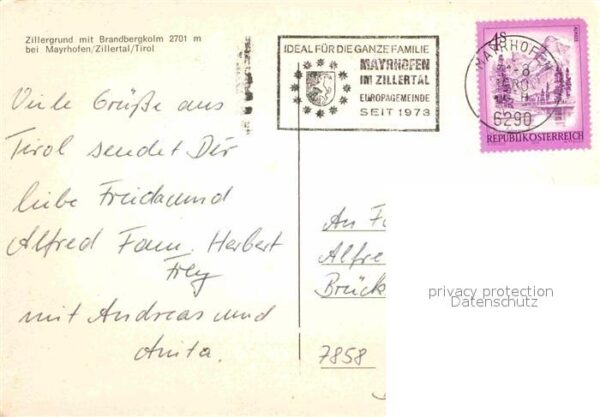 Zillergrund mit Brandbergkolm 2701 m
bei Mayrhofen/Zillertal/Tirol
IDEAL FÜR DIE GANZE FAMILIE
MAYRHOFEN
IM ZILLERTAL
EUROPAGEMEINDE
SEIT 1973
MAYRHOFEN
6290
4S
REPUBLIK ÖSTERREICH
Viele Grüße aus
Tirol sendet Dir
liebe Frieda und
Alfred Fam. Herbert
Frey
mit Andreas und
Anita.
An Fa
Alfre
Brück
7858
privacy protection
Datenschutz